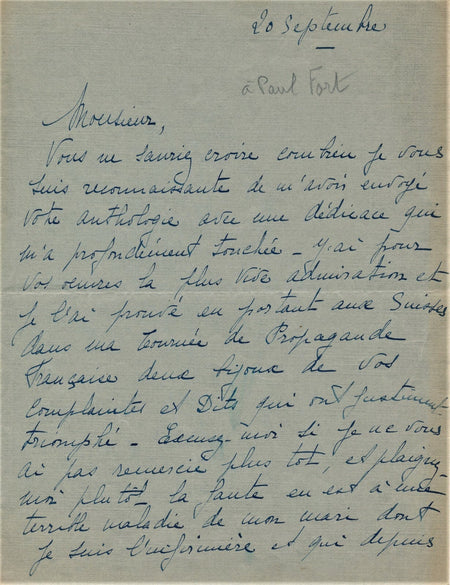 20 Septembre
à Paul Fort
Monsieur,
Vous ne sauriez croire combien je vous
suis reconnaissante de m'avoir envoyé
votre anthologie avec une dédicace qui
m'a profondément touchée – j'ai pour
vos œuvres la plus vive admiration et
je l'ai prouvé en portant aux Suisses
dans ma tournée de Propagande
Française deux bijoux de vos
Complaintes et Dits qui ont justement
triomphé – Excusez-moi si je ne vous
ai pas remercié plus tôt, et plaignez-
moi plutôt la faute en est à une
terrible maladie de mon mari dont
je suis l'infirmière et qui depuis